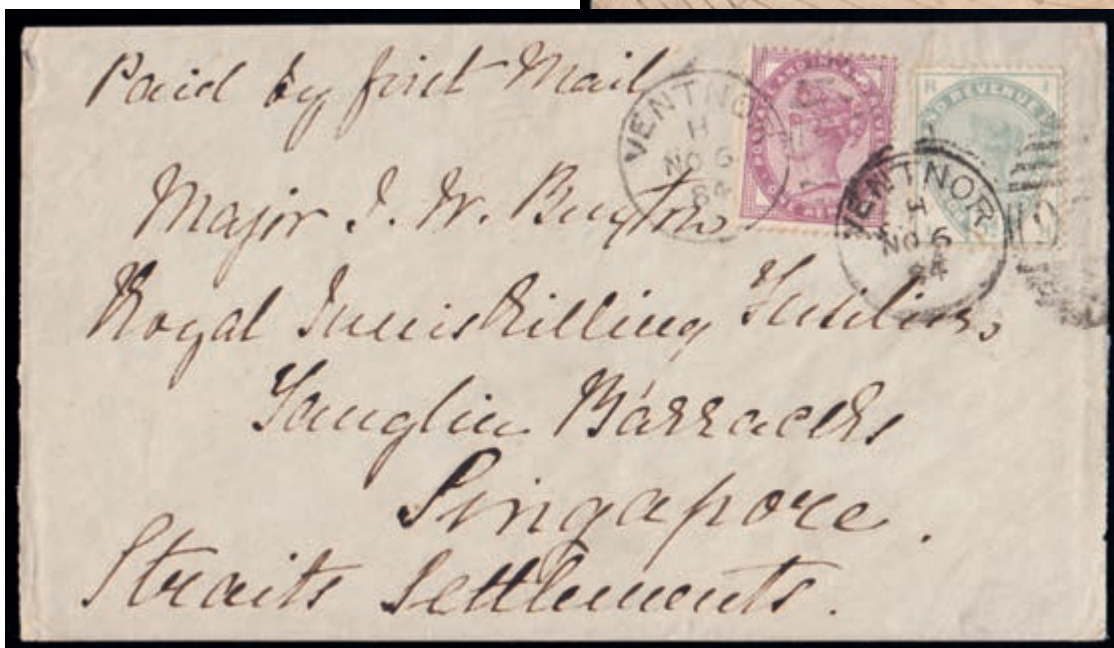 Paid by first Mail
VENTNOR
H
NO 6
84
VENTNOR
H
NO 6
84
H I
AND REVENUE
Major J. W. Buxton
Royal Inniskilling Fusiliers
Tanglin Barracks
Singapore.
Straits Settlements.